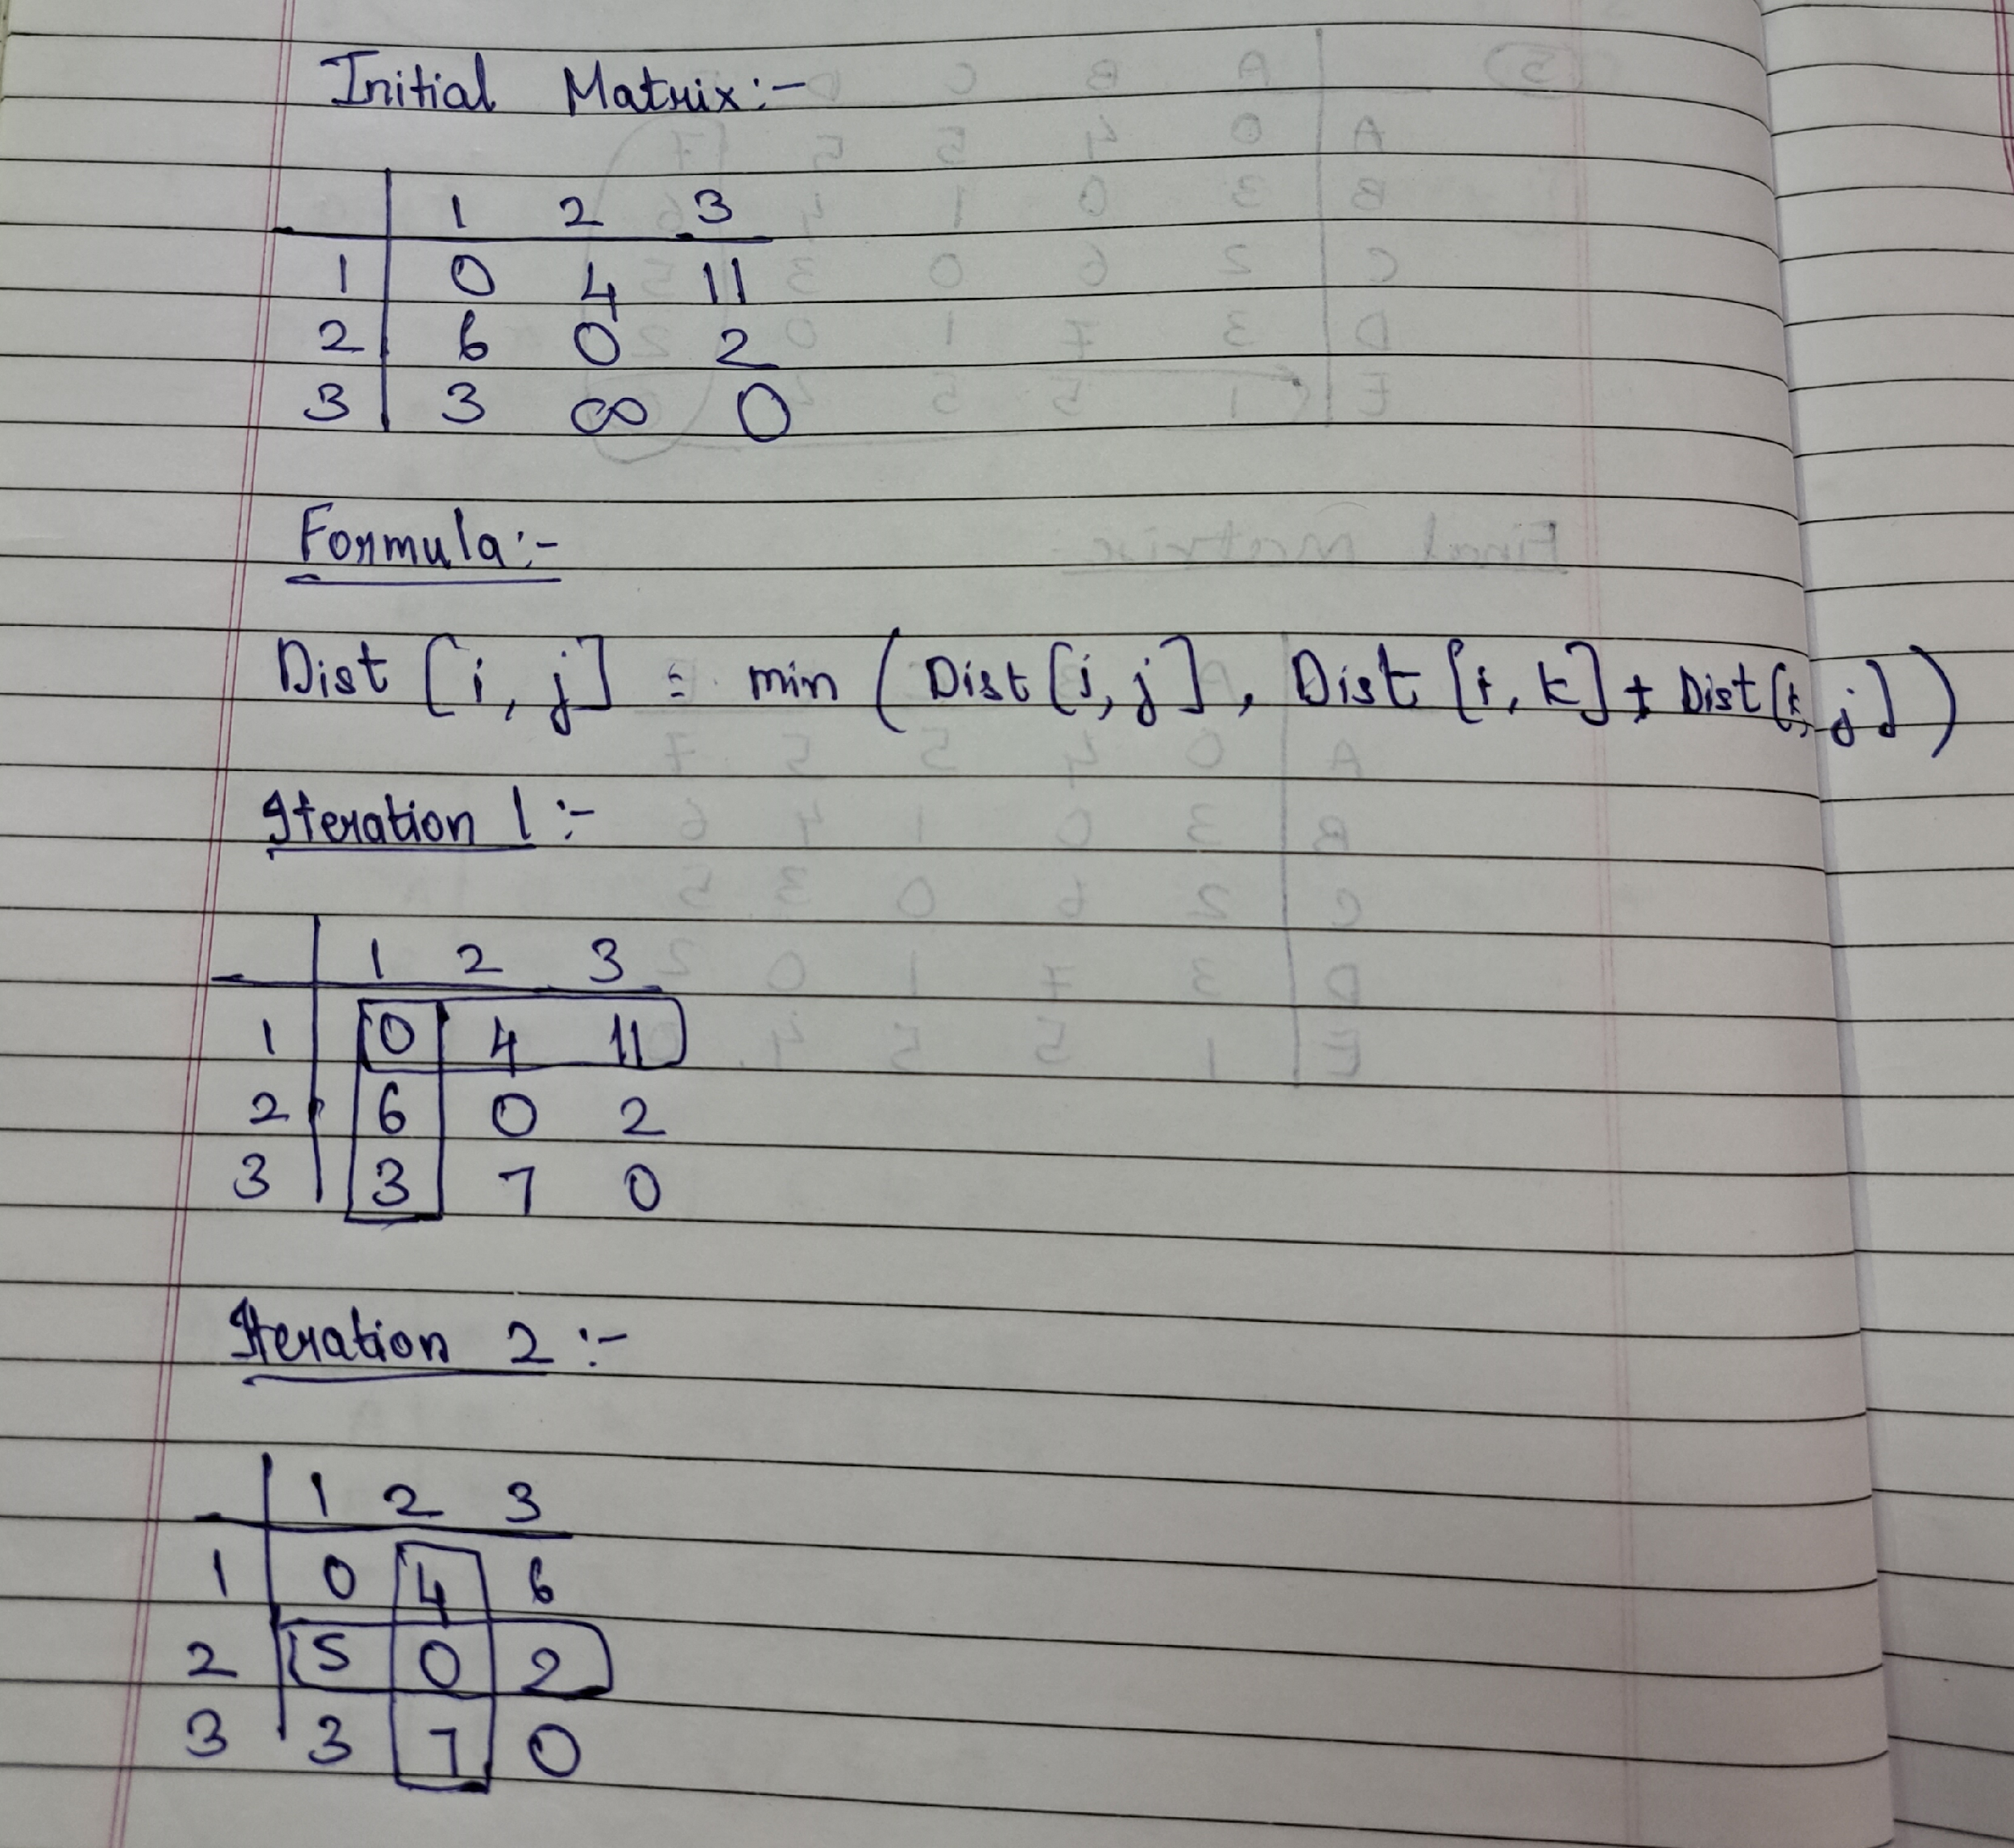 Initial Matrix:-
1 2 3
1 0 4 11
2 6 0 2
3 3 ∞ 0
Formula:-
Dist [i, j] = min (Dist [i, j], Dist [i, k] + Dist [k, j])
Iteration 1 :-
1 2 3
1 0 4 11
2 6 0 2
3 3 7 0
Iteration 2 :-
1 2 3
1 0 4 6
2 5 0 2
3 3 7 0